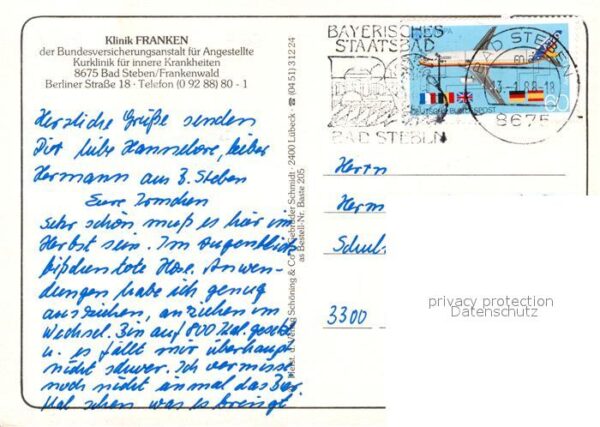 Klinik FRANKEN
der Bundesversicherungsanstalt für Angestellte
Kurklinik für innere Krankheiten
8675 Bad Steben/Frankenwald
Berliner Straße 18 · Telefon (0 92 88) 80 - 1
BAYERISCHES
STAATSBAD
BAD STEBEN
BAD STEBEN
8675
60
DEUTSCHE BUNDESPOST
Herzliche Grüße senden
Dir liebe Hannelore, lieber
Hermann aus B. Steben
Eure
Sehr schön muß es hier im
Herbst sein. Im Augenblick
bißchen tote Hose. Anwen-
dungen habe ich genug
ausziehen, anziehen im
Wechsel. Bin auf 800 Kal. gesetzt
u. es fällt mir überhaupt
nicht schwer. Ich vermisse
noch nicht einmal das Bier
Mal sehen was es bringt
Schöning & Co Gebrüder Schmidt · 2400 Lübeck · ☎ (04 51) 3 12 24
Bestell-Nr. Baste 205
Herrn
Herm
Schul
3300
privacy protection
Datenschutz